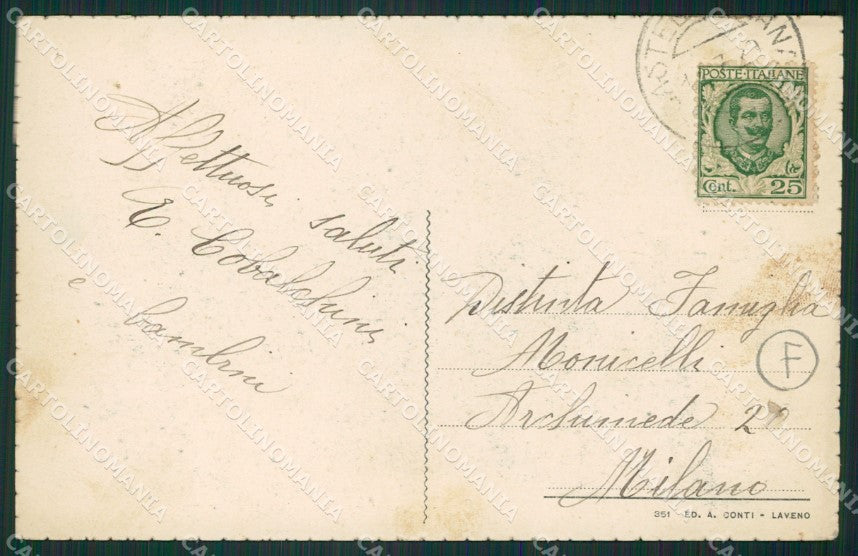 Affettuosi saluti
E. Covalchini
e bambini
POSTE·ITALIANE
Cent. 25
Distinta Famiglia
Monicelli
F
Archimede 20
Milano
351 - ED. A. CONTI - LAVENO
CARTOLINOMANIA